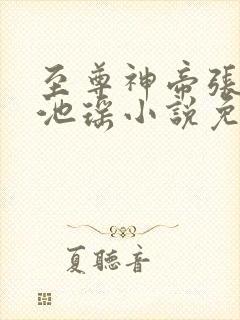 至尊神帝張
池瑤小說免
夏聽音